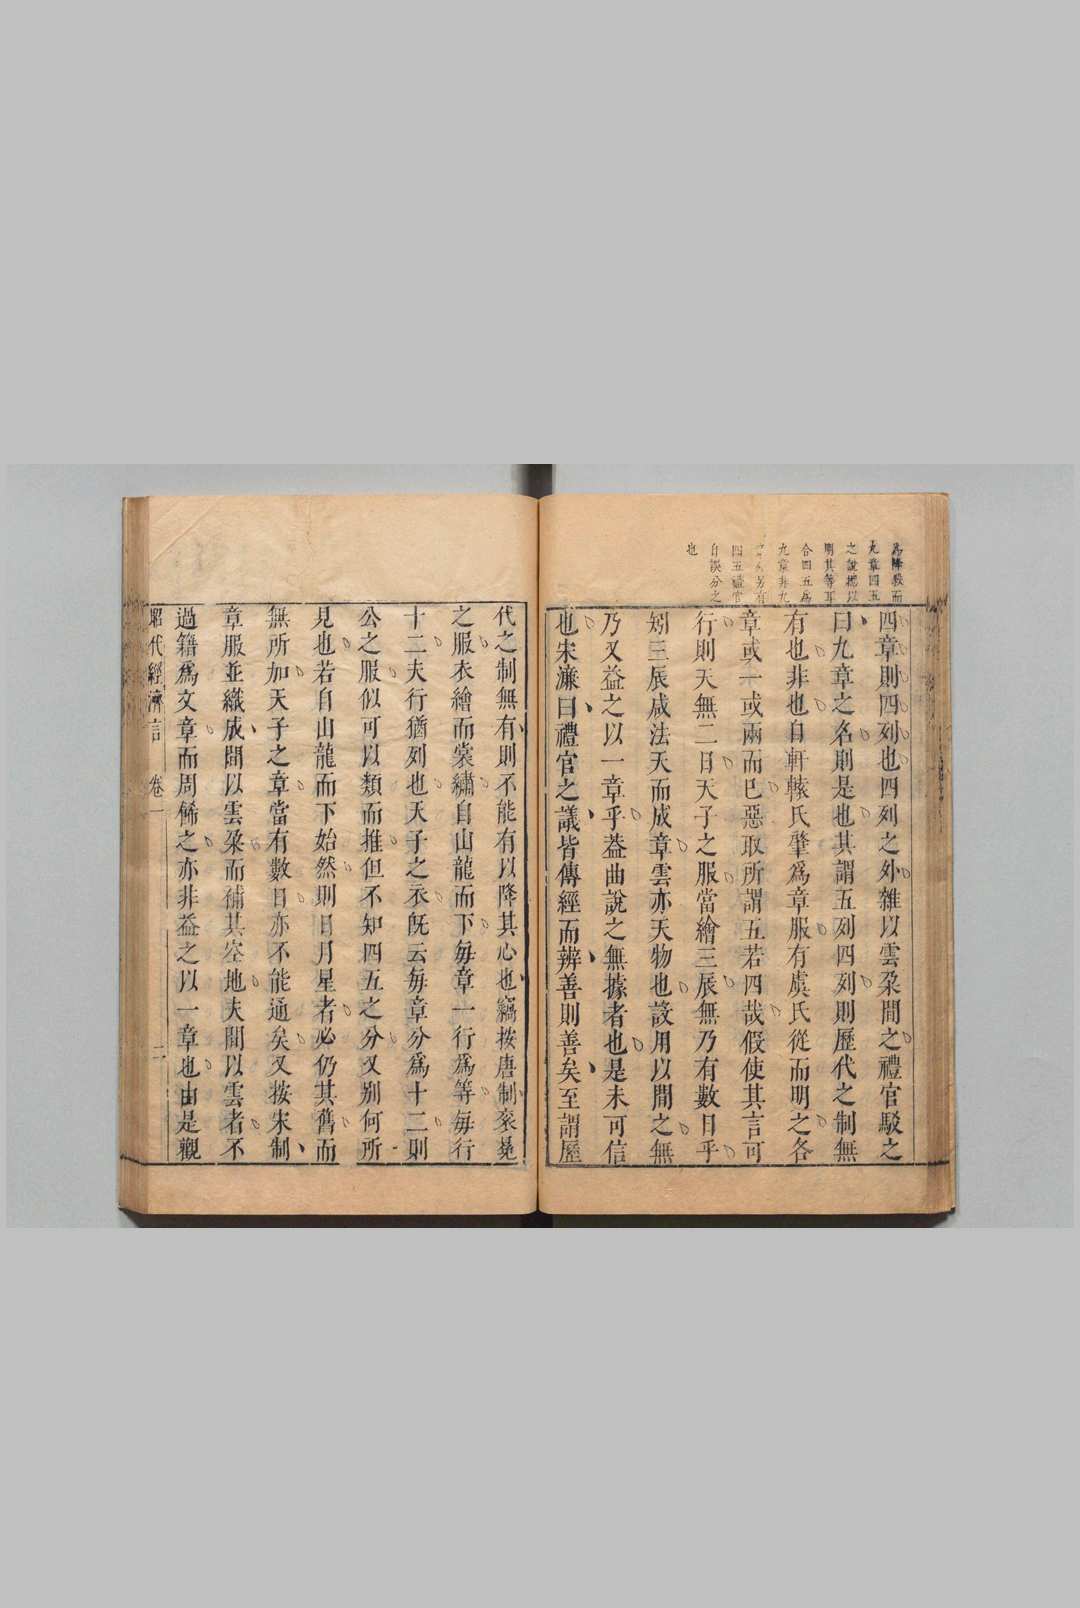 為降殺而
九章四五
之說攙以
明其等耳
合四五爲
九章非九
章外另有
四五禮官
自誤分之
也
四章則四列也四列之外雜以雲朶間之禮官駁之
曰九章之名則是也其謂五列四列則歷代之制無
有也非也自軒轅氏肇爲章服有虞氏從而明之各
章或一或兩而已惡取所謂五若四哉假使其言可
行則天無二日天子之服當繪三辰無乃有數日乎
矧三辰咸法天而成章雲亦天物也設用以間之無
乃又益之以一章乎葢曲說之無據者也是未可信
也宋濂曰禮官之議皆傳經而辨善則善矣至謂歷
代之制無有則不能有以降其心也竊按唐制衮冕
之服衣繪而裳繡自山龍而下每章一行爲等每行
十二夫行猶列也天子之衣既云每章分爲十二則
公之服似可以類而推但不知四五之分又别何所
見也若自山龍而下始然則日月星者必仍其舊而
無所加天子之章當有數日亦不能通矣又按宋制
章服並織成間以雲朶而補其空地夫間以雲者不
過籍爲文章而周餙之亦非益之以一章也由是觀
昭代經濟言 卷一 二